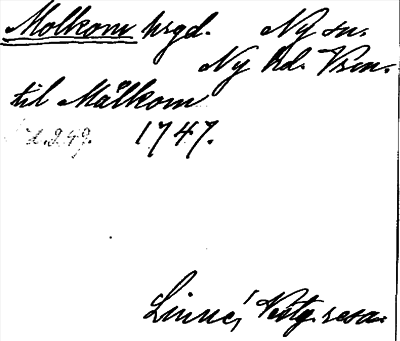 Molkom hrgd. Ny sn.
Ny hd. Vrm.
til Målkom
s. 249. 1747.
Linné, Vestg. resa.